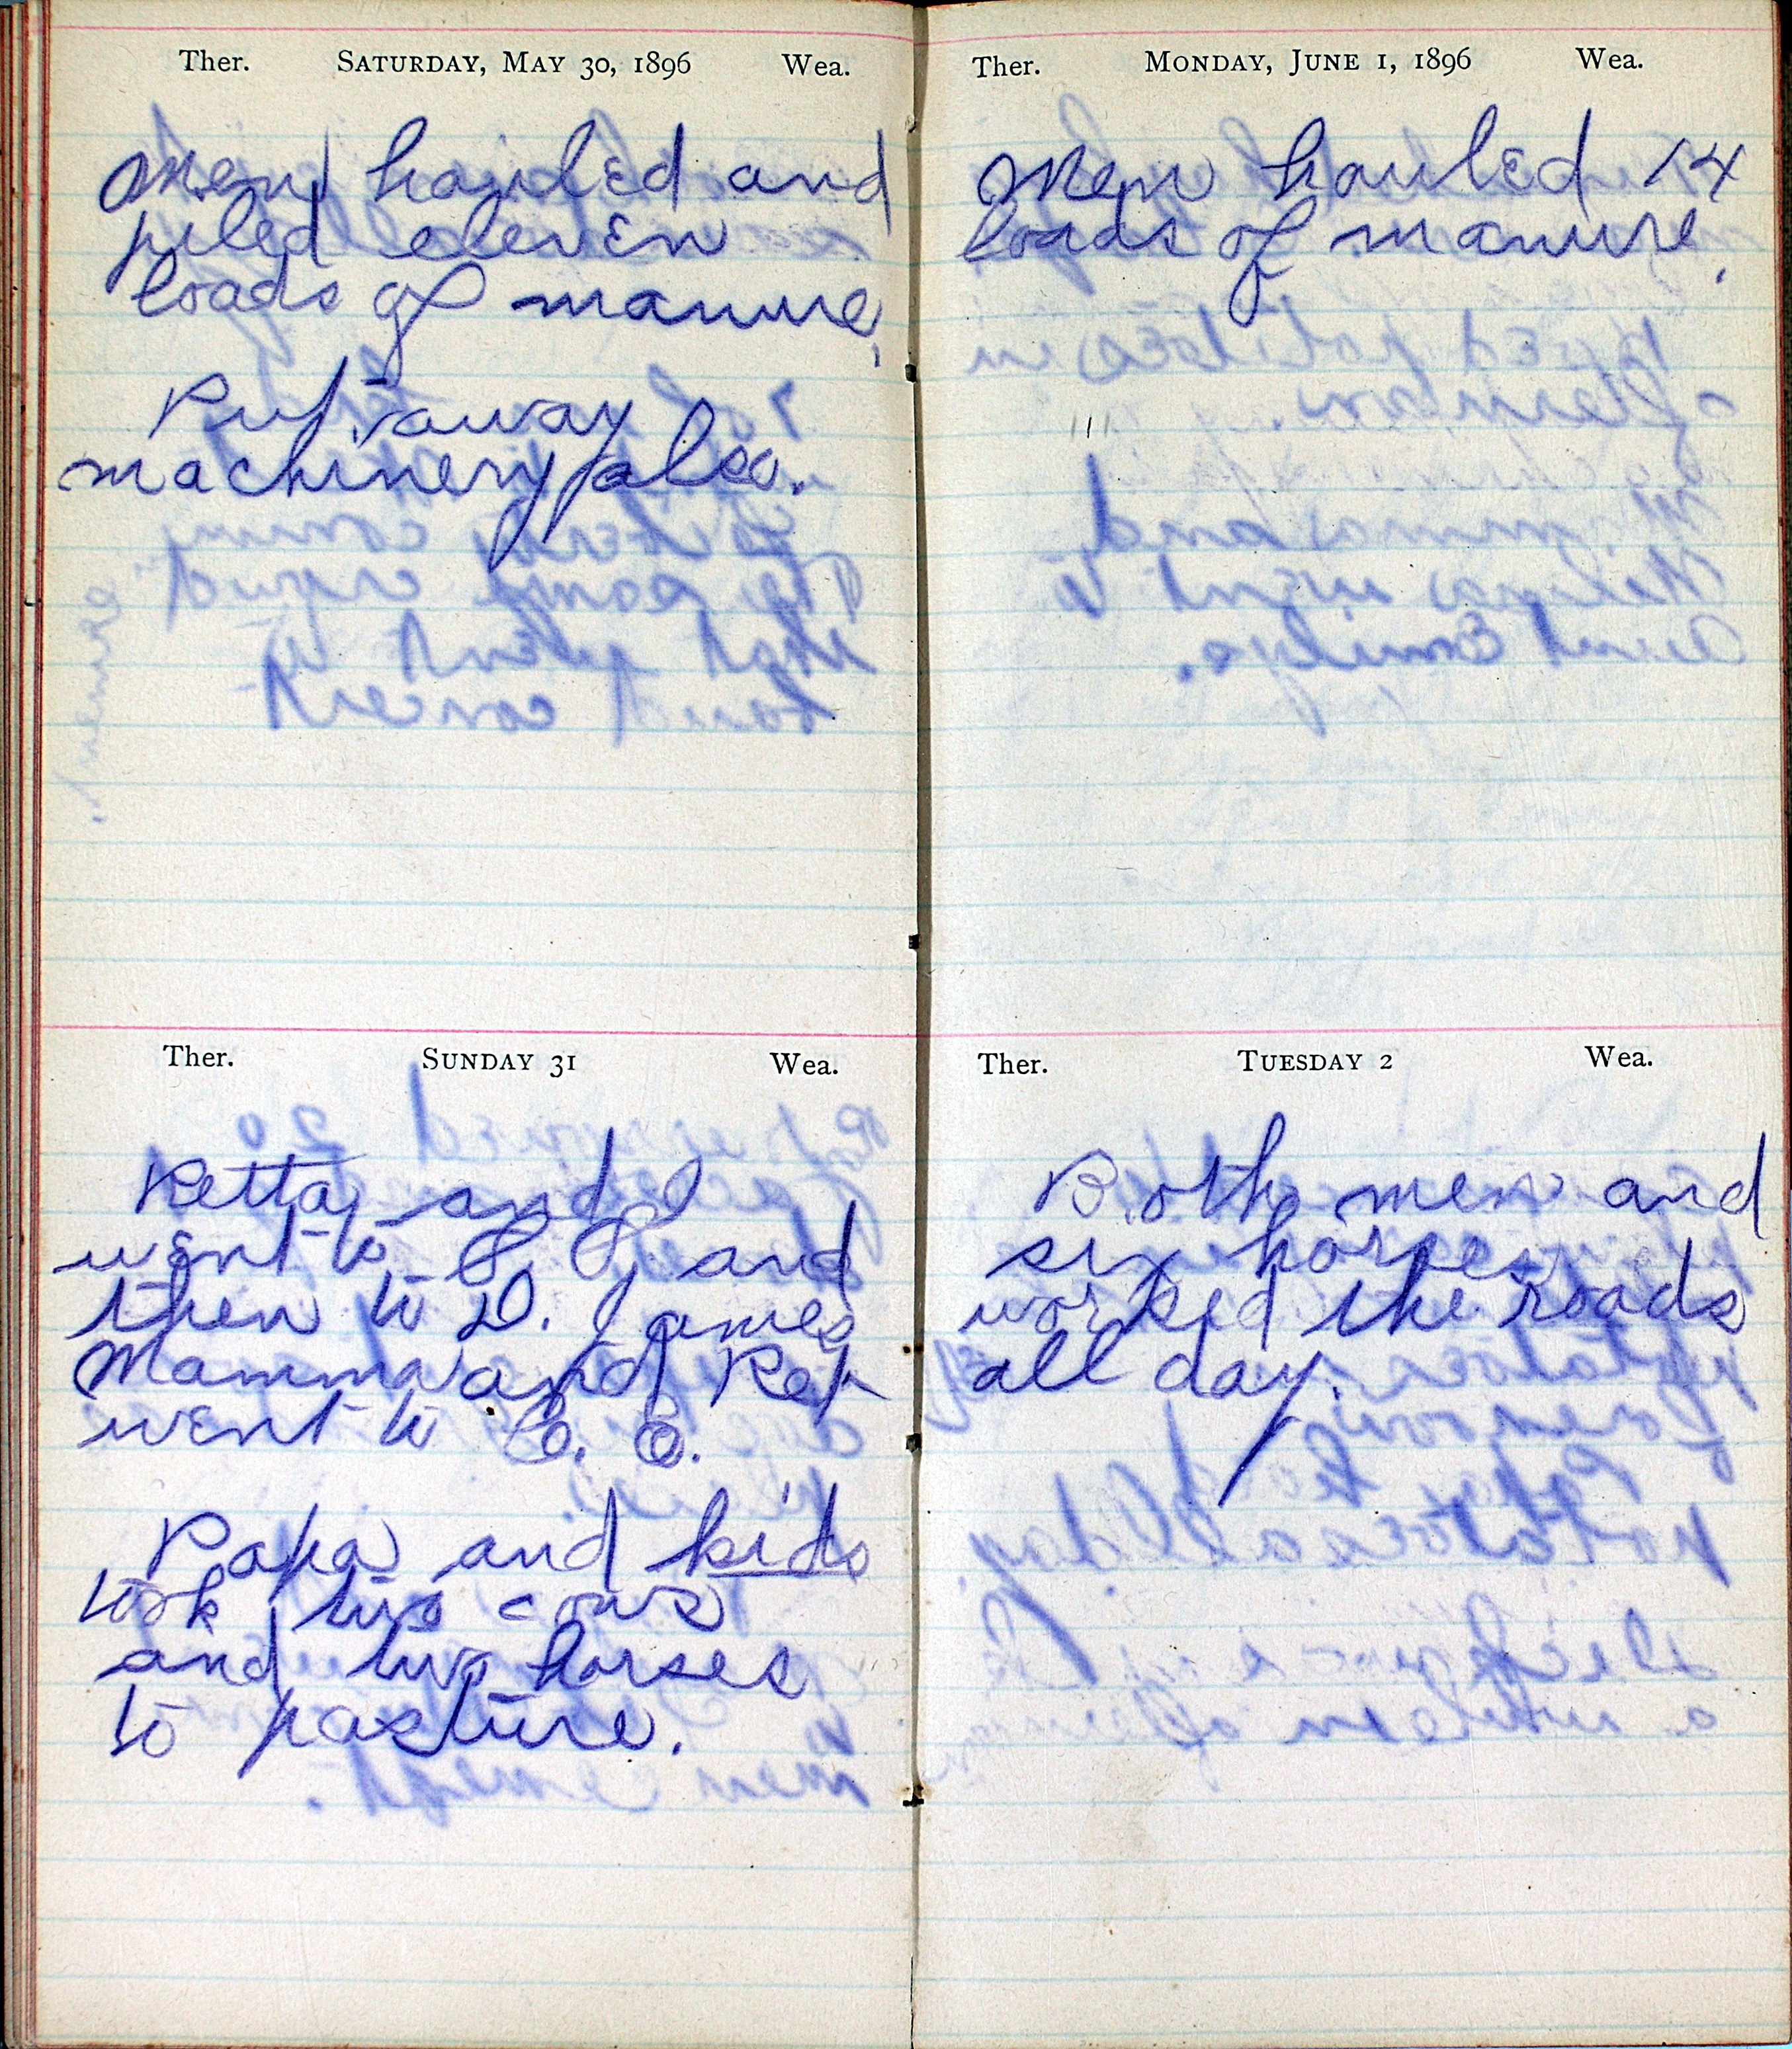 Ther. Saturday, May 30, 1896 Wea.
Men hauled and
piled eleven
loads of manure.
Put away
machinery also.
Ther. Sunday 31 Wea.
Retta and I
went to P. P. and
then to D. James
Mamma and Ret
went to C. C.
Papa and kids
took two cows
and two horses
to pasture.
Ther. Monday, June 1, 1896 Wea.
Men hauled 14
loads of manure.
Ther. Tuesday 2 Wea.
Both men and
six horses
worked the roads
all day.